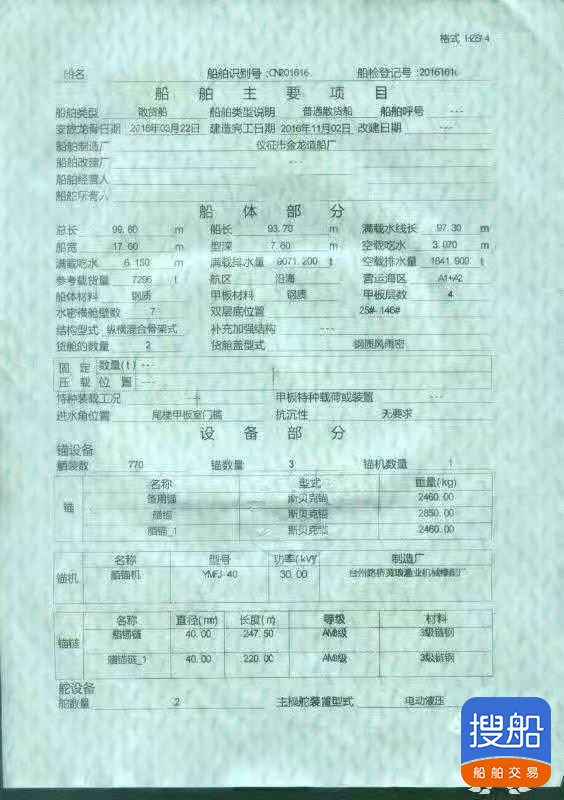 格式
船名 船舶识别号:CN201616 船检登记号:2016161
船舶主要项目
船舶类型 散货船 船舶类型说明 普通散货船 船舶呼号 ---
安放龙骨日期 2016年03月22日 建造完工日期 2016年11月02日 改建日期 ---
船舶制造厂 仪征市金龙造船厂
船舶改建厂 ---
船舶经营人
船舶所有人
船体部分
总长 99.80 m 船长 93.70 m 满载水线长 97.30 m
船宽 17.60 m 型深 7.60 m 空载吃水 3.070 m
满载吃水 6.150 m 满载排水量 9071.200 t 空载排水量 1641.900 t
参考载货量 7296 t 航区 沿海 营运海区 A1+A2
船体材料 钢质 甲板材料 钢质 甲板层数 4
水密横舱壁数 7 双层底位置 25#-146#
结构型式 纵横混合骨架式 补充加强结构 ---
货舱的数量 2 货舱盖型式 钢质风雨密
固定 数量(t) ---
压载 位置 ---
特种装载工况 甲板特种载荷或装置 ---
进水角位置 尾楼甲板室门槛 抗沉性 无要求
设备部分
锚设备
艏装数 770 锚数量 3 锚机数量 1
名称 型式 重量(kg)
备用锚 斯贝克锚 2460.00
锚 艏锚 斯贝克锚 2850.00
艏锚_1 斯贝克锚 2460.00
名称 型号 功率(kW) 制造厂
锚机 艏锚机 YMFJ-40 30.00
名称 直径(mm) 长度(m) 等级 材料
锚链 艏锚链 40.00 247.50 AM3级 3级链钢
艏锚链_1 40.00 220.00 AM3级 3级链钢
舵设备
舵数量 2 主操舵装置型式 电动液压
搜船
船舶交易